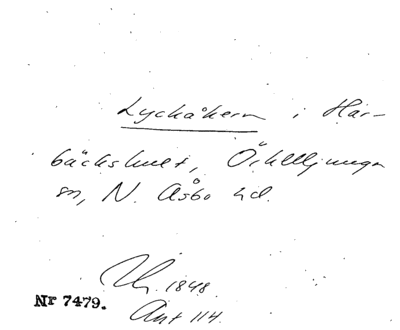 Lyckåkern i Här-
bäckshult, Örkelljunga
sn, N. Åsbo hd.
1848.
Nr 7479.
Ant 114.